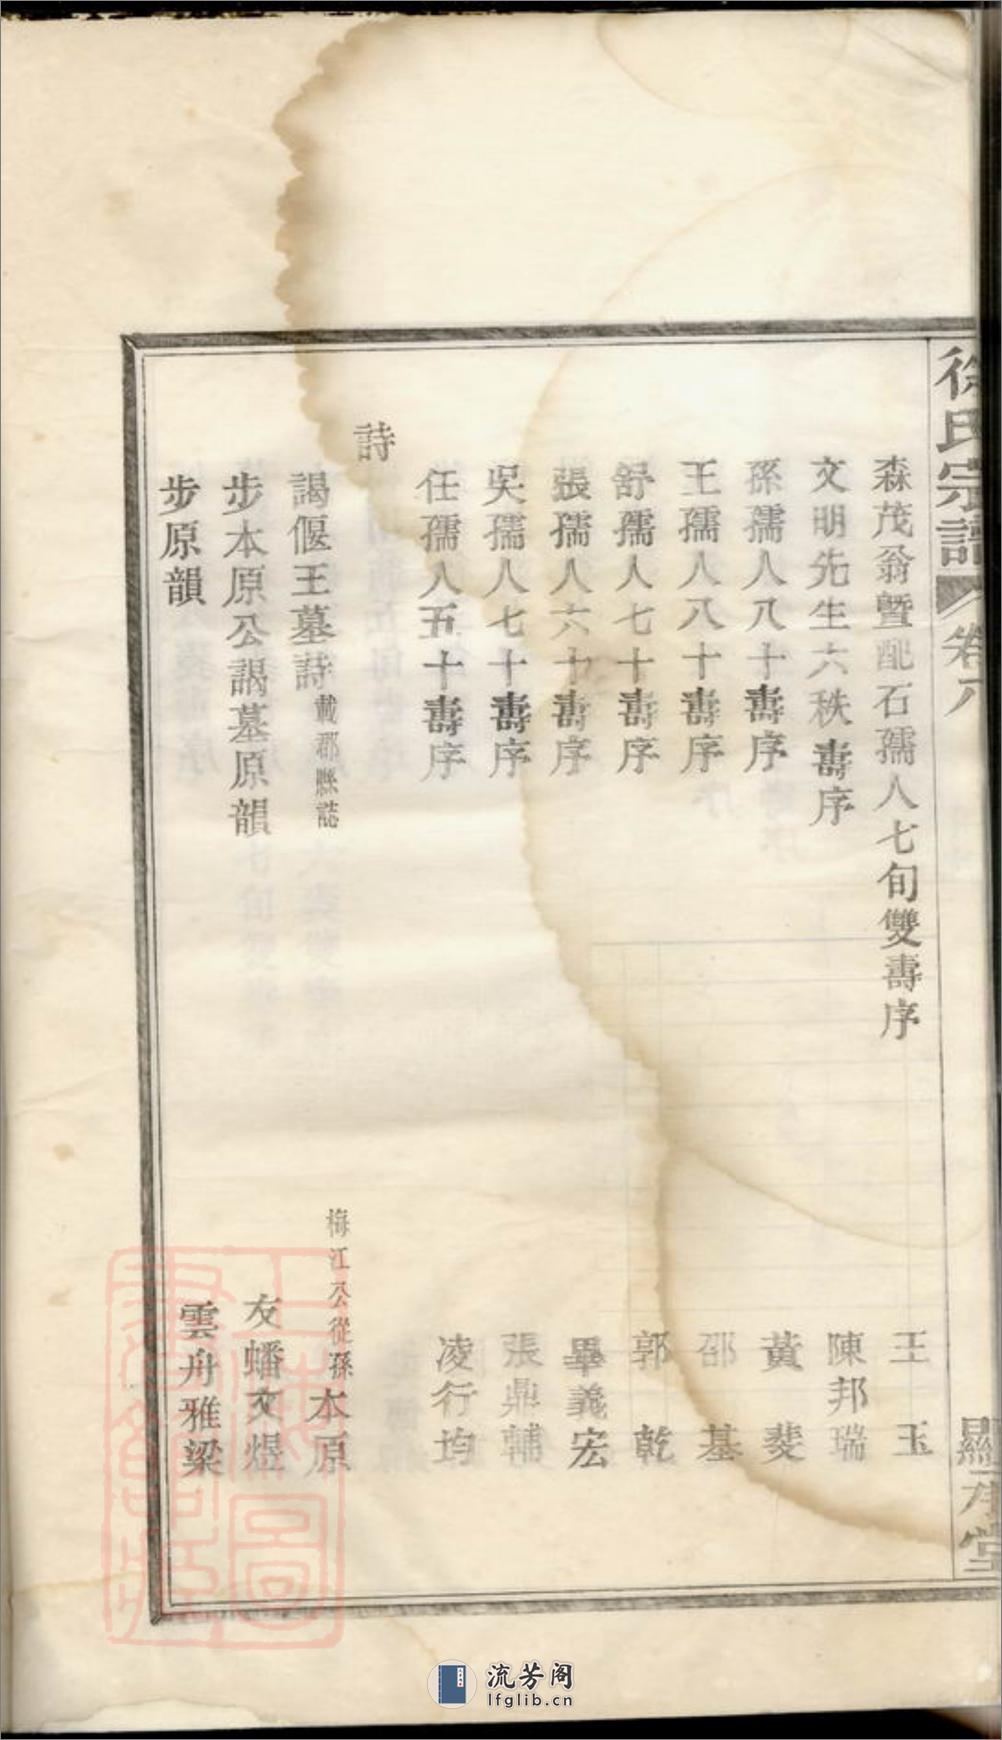 徐氏宗譜 卷八 顯承堂
森茂翁暨配石孺人七旬雙壽序 王玉
文明先生六秩壽序 陳邦瑞
孫孺人八十壽序 黃斐
王孺人八十壽序 邵基
舒孺人七十壽序 郭乾
張孺人六十壽序 畢義宏
吳孺人七十壽序 張鼎輔
任孺人五十壽序 凌行均
詩
謁偃王墓詩 載郡縣誌 梅江公從孫本原
步本原公謁墓原韻 友蟠文煜
步原韻 雲舟雅梁
流芳阁
lfglib.cn